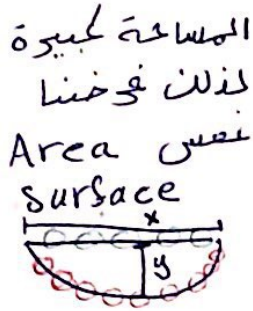 المساحة كبيرة
لذلك فرضنا
نفس Area
surface
x
y